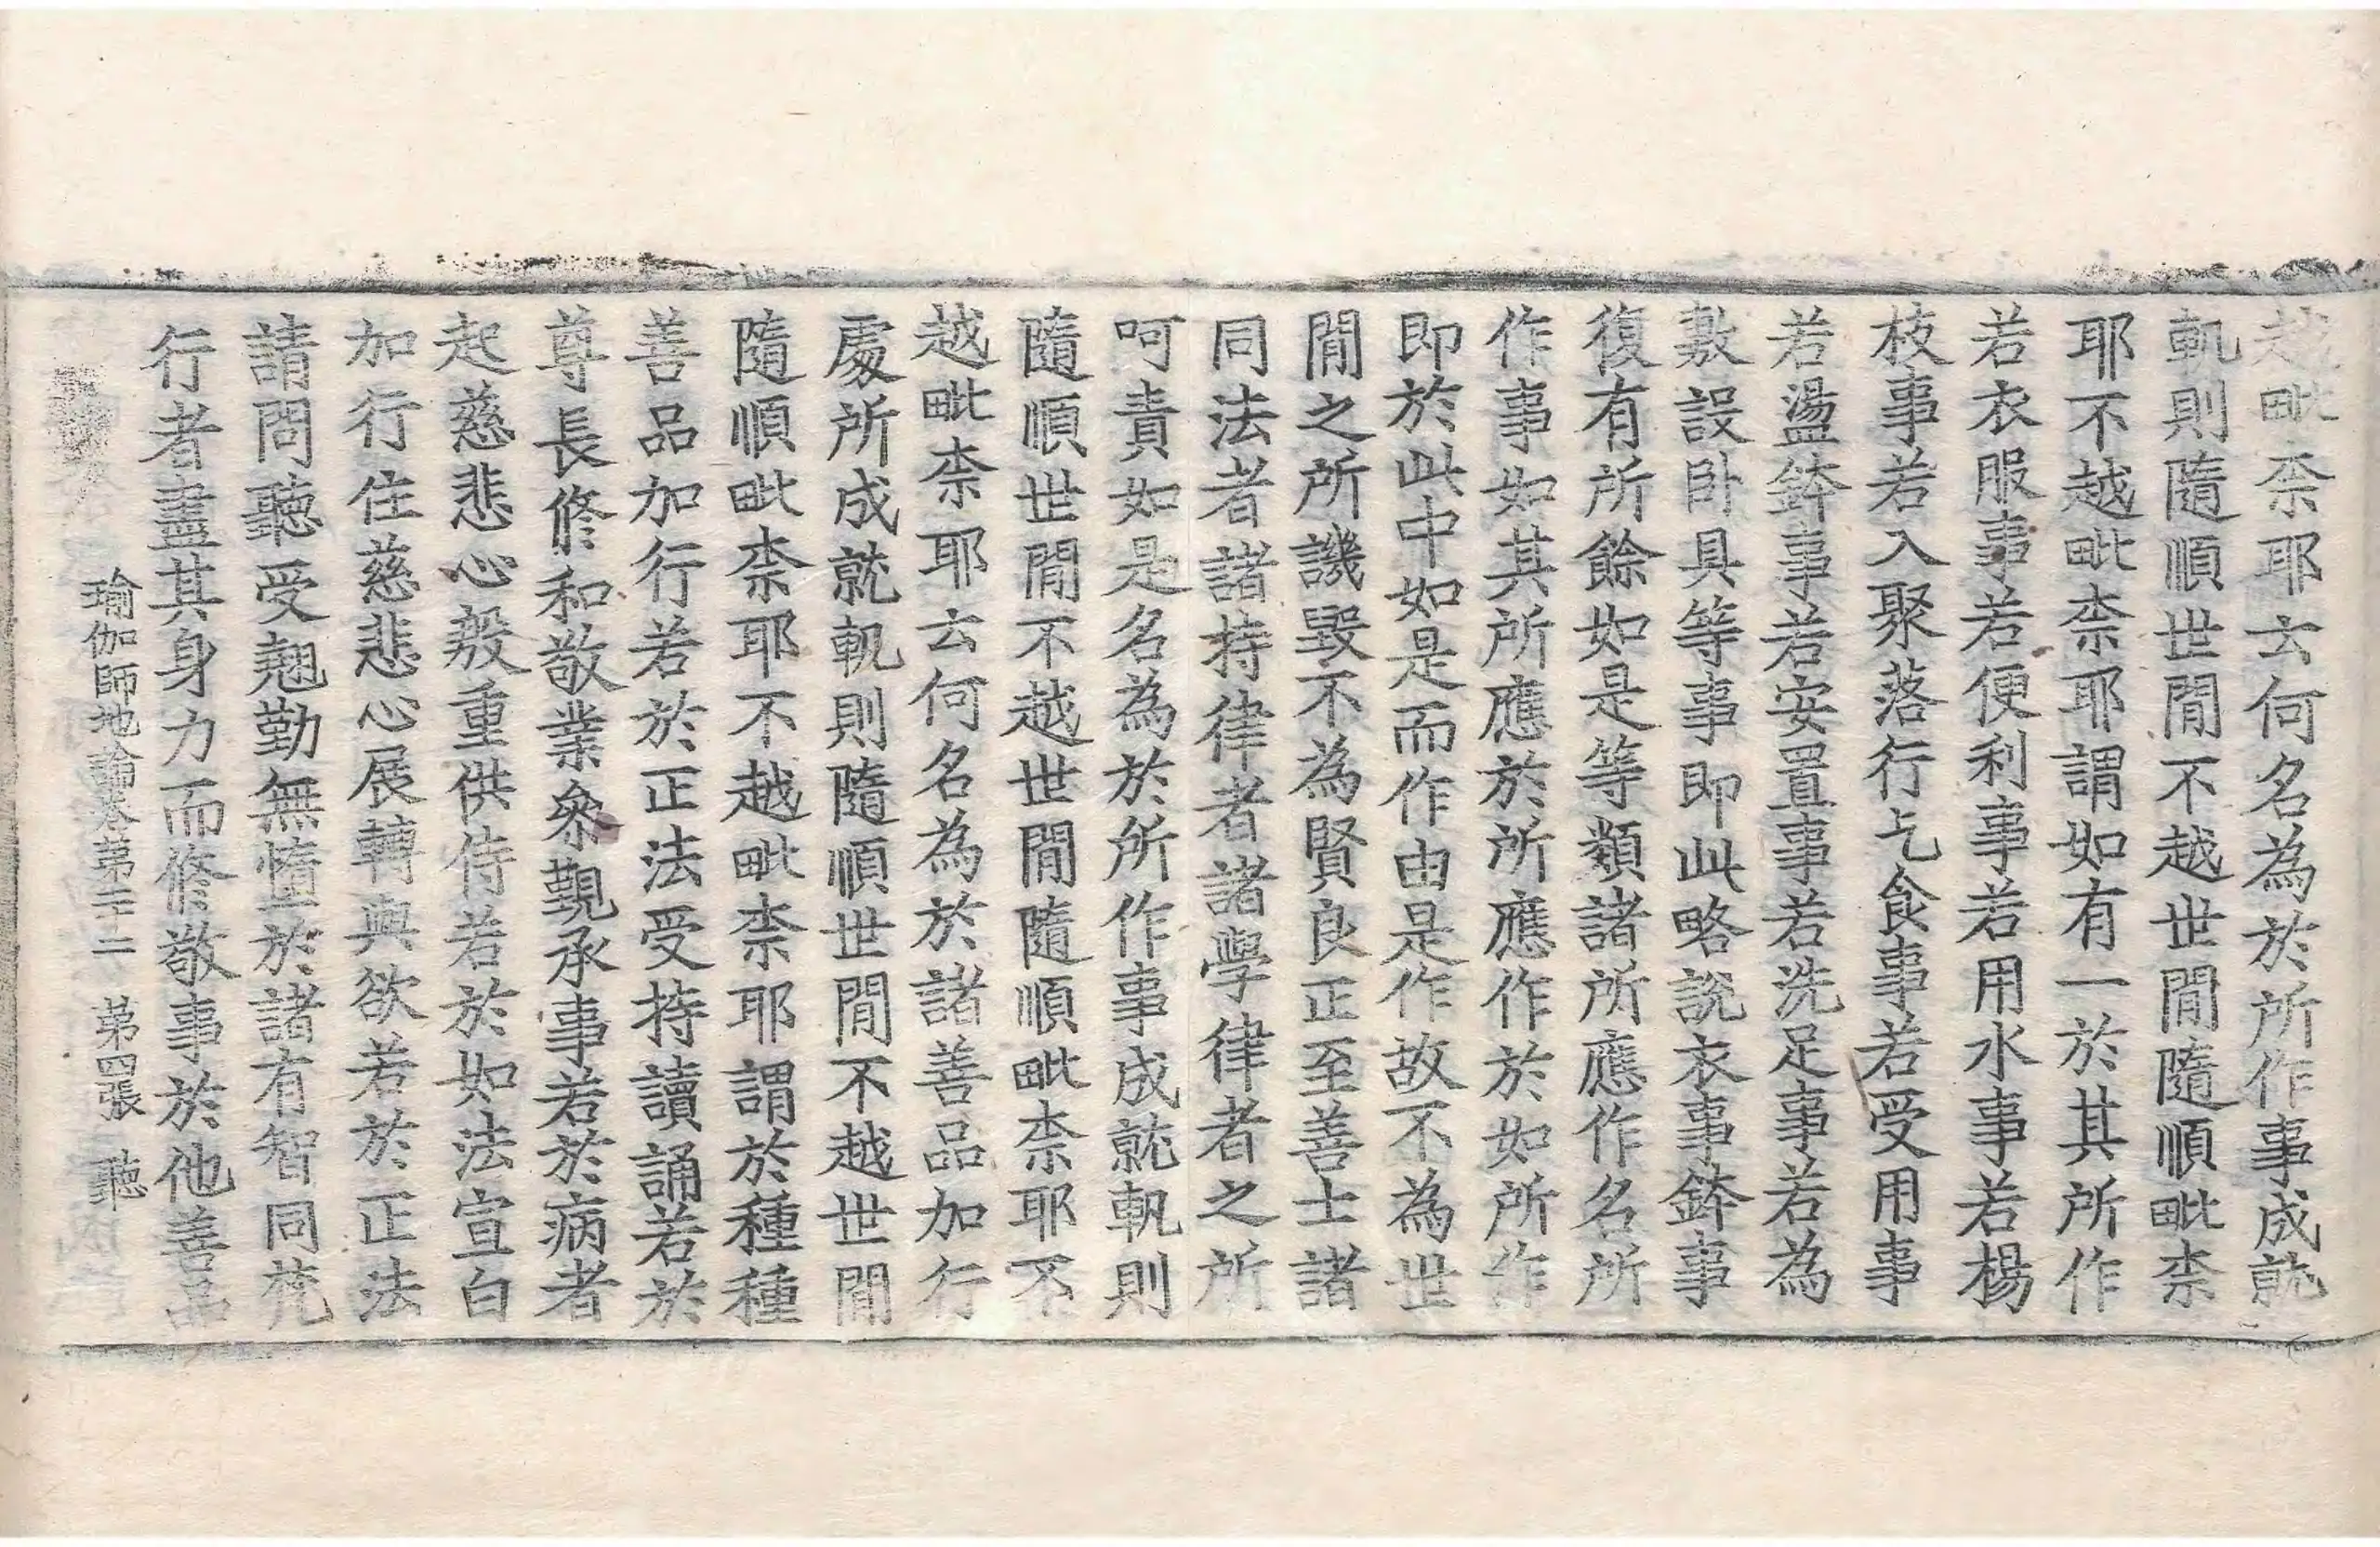 越毗柰耶云何名為於所作事成就
軌則隨順世閒不越世閒隨順毗柰
耶不越毗柰耶謂如有一於其所作
若衣服事若便利事若用水事若楊
枝事若入聚落行乞食事若受用事
若盪鉢事若安置事若洗足事若為
敷設卧具等事即此略說衣事鉢事
復有所餘如是等類諸所應作名所
作事如其所應於所應作於如所作
即於此中如是而作由是作故不為世
閒之所譏毀不為賢良正至善士諸
同法者諸持律者諸學律者之所
呵責如是名為於所作事成就軌則
隨順世閒不越世閒隨順毗柰耶不
越毗柰耶云何名為於諸善品加行
處所成就軌則隨順世閒不越世閒
隨順毗柰耶不越毗柰耶謂於種種
善品加行若於正法受持讀誦若於
尊長修和敬業叅覲承事若於病者
起慈悲心殷重供侍若於如法宣白
加行住慈悲心展轉與欲若於正法
請問聽受翹勤無憜於諸有智同梵
行者盡其身力而修敬事於他善品
瑜伽師地論卷第二十二 第四張 聽